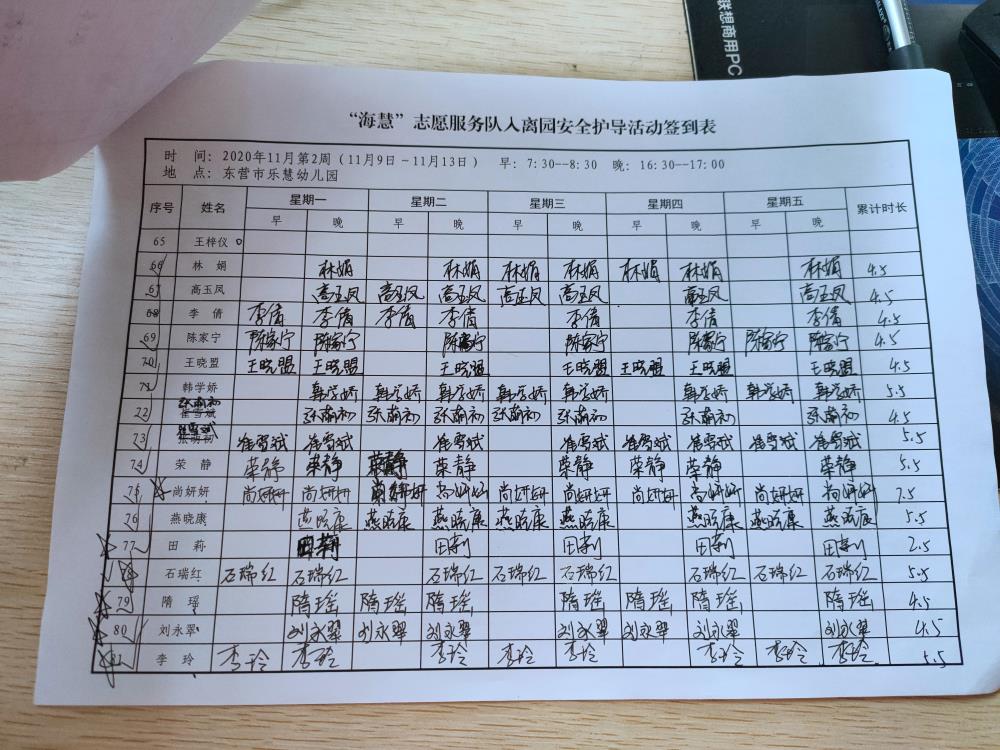 联想商用PC
“海慧”志愿服务队入离园安全护导活动签到表
时 间: 2020年11月第2周(11月9日-11月13日) 早: 7:30--8:30 晚: 16:30--17:00
地 点: 东营市乐慧幼儿园
序号 姓名 星期一 星期二 星期三 星期四 星期五 累计时长
早 晚 早 晚 早 晚 早 晚 早 晚
65 王梓仪
66 林 娟 林娟 林娟 林娟 林娟 林娟 林娟 林娟 4.5
67 高玉凤 高玉凤 高玉凤 高玉凤 高玉凤 高玉凤 高玉凤 高玉凤 4.5
68 李 倩 李倩 李倩 李倩 李倩 李倩 李倩 李倩 4.5
69 陈家宁 陈家宁 陈家宁 陈家宁 陈家宁 陈家宁 陈家宁 陈家宁 4.5
70 王晓盟 王晓盟 王晓盟 王晓盟 王晓盟 王晓盟 王晓盟 王晓盟 4.5
71 韩学娇 韩学娇 韩学娇 韩学娇 韩学娇 韩学娇 韩学娇 韩学娇 韩学娇 5.5
张萌初
22 崔雪斌 张萌初 张萌初 张萌初 张萌初 张萌初 张萌初 张萌初 4.5
崔雪斌
73 张萌初 崔雪斌 崔雪斌 崔雪斌 崔雪斌 崔雪斌 崔雪斌 崔雪斌 崔雪斌 5.5
74 荣 静 荣静 荣静 荣静 荣静 荣静 荣静 荣静 荣静 5.5
75 尚妍妍 尚妍妍 尚妍妍 尚妍妍 尚妍妍 尚妍妍 尚妍妍 尚妍妍 尚妍妍 尚妍妍 尚妍妍 7.5
76 燕晓康 燕晓康 燕晓康 燕晓康 燕晓康 燕晓康 燕晓康 燕晓康 燕晓康 5.5
77 田 莉 田莉 田莉 田莉 田莉 田莉 2.5
78 石瑞红 石瑞红 石瑞红 石瑞红 石瑞红 石瑞红 石瑞红 石瑞红 石瑞红 5.5
79 隋 瑶 隋瑶 隋瑶 隋瑶 隋瑶 隋瑶 隋瑶 隋瑶 4.5
80 刘永翠 刘永翠 刘永翠 刘永翠 刘永翠 刘永翠 刘永翠 刘永翠 4.5
81 李 玲 李玲 李玲 李玲 李玲 李玲 李玲 李玲 李玲 5.5